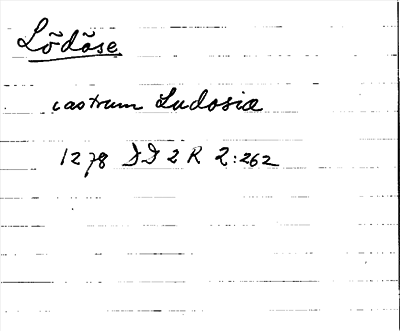 Lõdõse
castrum Ludosiæ
1278 DD 2 R 2:262